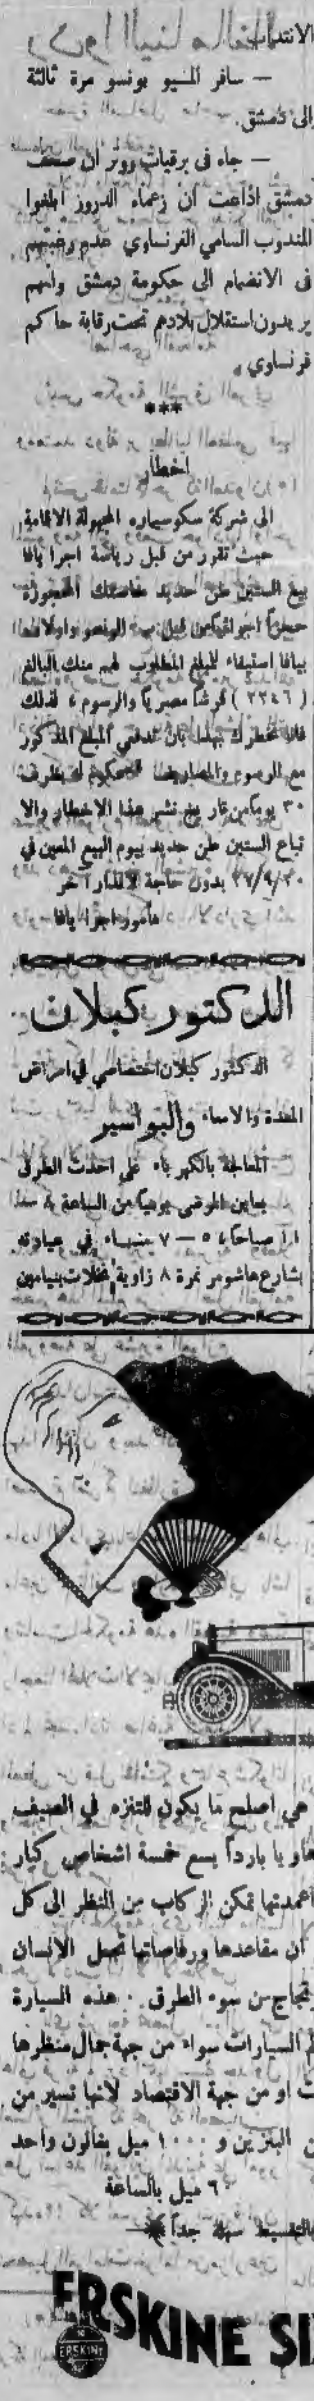 الانتداب
— سافر المسيو بونسو مرة ثالثة
الى دمشق.
— جاء في برقيات روتر ان صحف
دمشق اذاعت ان زعماء الدروز ابلغوا
المندوب السامي الفرنساوي عدم رغبتهم
في الانضمام الى حكومة دمشق وانهم
يريدون استقلال بلادهم تحت رقابة حاكم
فرنساوي.
***
اخطار
الى شركة سكوسياره المجهولة الاقامة
حيث تقرر من قبل رياسة اجرا يافا
بيع الستين طن حديد خاصتك المحجوزة
حجزاً من قبل واولاده
بيافا استيفاء للمبلغ المطلوب لهم منك البالغ
( ٢٢٤٦ ) قرشا مصريا والرسوم، لذلك
بان تدفعي المبلغ المذكور
مع الرسوم والمصاريف بظرف
٣٠ يوما من تاريخ نشر هذا الاخطار والا
تباع الستين طن حديد بيوم البيع المعين في
بدون حاجة لانذار آخر
مأمور اجرا يافا
الدكتور كبلان
الدكتور كبلان اختصاصي في امراض
المعدة والامعاء والبواسير
المعالجة بالكهرباء على احدث الطرق
يعاين المرضى يوميا من الساعة
صباحا و ٥ — ٧ مساء في عيادته
بشارع هاشومر نمرة ٨ زاوية نحلات بنيامين
هي اصلح ما يكون للتنزه في الصيف
هاويا بارداً يسع خمسة اشخاص كبار
اعمدتها تمكن الركاب من النظر الى كل
ان مقاعدها ورفاصاتها تجعل الانسان
من سوء الطرق . هذه السيارة
السيارات سواء من جهة جمال منظرها
او من جهة الاقتصاد لانها تسير من
البنزين و ١٠٠٠ ميل بغالون واحد
٦ ميل بالساعة
بالتقسيط سهلة جداً
ERSKINE SI
ERSKINE